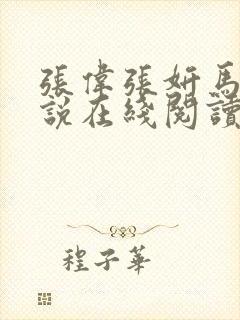 張偉張妍馬
說在綫閱讀
程子華